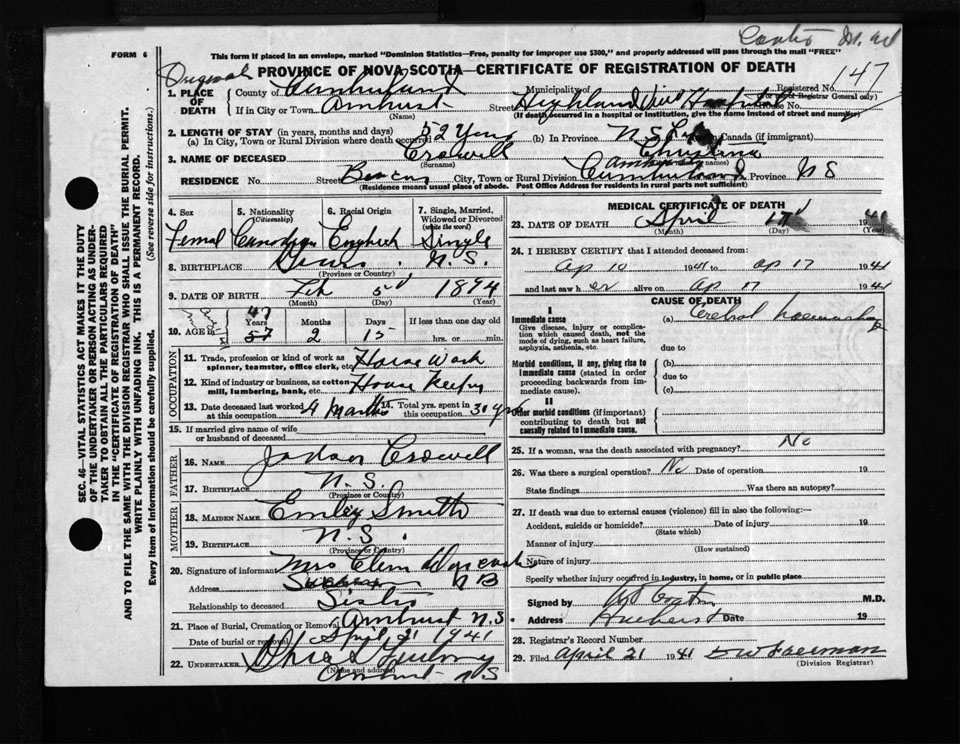 FORM 6
This form If placed in an envelope, marked "Dominion Statistics—Free, penalty for improper use $300," and property addressed will pass through the mail "FREE"
Original
PROVINCE OF NOVA SCOTIA—CERTIFICATE OF REGISTRATION OF DEATH
147
1. PLACE OF DEATH
County of Cumberland
Municipality
Registered No.
(For use of Registrar General only)
If in City or Town Amherst Street Highland View Hospital House No.
(Name) (If death occurred in a hospital or institution, give the name instead of street and number)
2. LENGTH OF STAY (in years, months and days)
(a) In City, Town or Rural Division where death occurred 52 Years (b) In Province N S Life Canada (if immigrant)
3. NAME OF DECEASED Crowell Christina
(Surname) names)
RESIDENCE No. Street City, Town or Rural Division Amherst Cumberland Province N S
(Residence means usual place of abode. Post Office Address for residents in rural parts not sufficient)
4. Sex Femal
5. Nationality (Citizenship) Canadian
6. Racial Origin English
7. Single, Married, Widowed or Divorced (write the word) Single
8. BIRTHPLACE N. S.
(Province or Country)
9. DATE OF BIRTH Feb 5 1894
(Month) (Day) (Year)
10. AGE 47 57 Years 2 Months 15 Days If less than one day old hrs. or min.
OCCUPATION
11. Trade, profession or kind of work as spinner, teamster, office clerk, etc. House Work
12. Kind of industry or business, as cotton mill, lumbering, bank, etc. House Keeping
13. Date deceased last worked at this occupation 4 Months 14. Total yrs. spent in this occupation 30 yrs
15. If married give name of wife or husband of deceased
FATHER
16. NAME Crowell
17. BIRTHPLACE N. S.
(Province or Country)
MOTHER
18. MAIDEN NAME Emley Smith
19. BIRTHPLACE N. S.
(Province or Country)
20. Signature of informant Mrs Clem
Address N B
Relationship to deceased Sister
21. Place of Burial, Cremation or Removal Amherst N. S.
Date of burial or removal April 21 1941
22. UNDERTAKER
(Name and address)
Amherst N S
MEDICAL CERTIFICATE OF DEATH
23. DATE OF DEATH April 17 1941
(Month) (Day) (Year)
24. I HEREBY CERTIFY that I attended deceased from:
Ap 10 1941 to Ap 17 1941
and last saw her alive on Ap 17 1941
CAUSE OF DEATH
I
Immediate cause (a) Cerebral
Give disease, injury or complication which caused death, not the mode of dying, such as heart failure, asphyxia, asthenia, etc.
due to
Morbid conditions, if any, giving rise to immediate cause (stated in order proceeding backwards from immediate cause).
(b)
due to
(c)
II
Other morbid conditions (if important) contributing to death but not causally related to immediate cause.
25. If a woman, was the death associated with pregnancy? No
26. Was there a surgical operation? No Date of operation 19
State findings Was there an autopsy?
27. If death was due to external causes (violence) fill in also the following:—
Accident, suicide or homicide? Date of injury 19
(State which)
Manner of injury
(How sustained)
Nature of injury
Specify whether injury occurred in industry, in home, or in public place
Signed by M.D.
Address Amherst Date 19
28. Registrar's Record Number
29. Filed April 21 1941 Freeman
(Division Registrar)
SEC. 46—VITAL STATISTICS ACT MAKES IT THE DUTY
OF THE UNDERTAKER OR PERSON ACTING AS UNDERTAKER
TO OBTAIN ALL THE PARTICULARS REQUIRED
IN THE "CERTIFICATE OF REGISTRATION OF DEATH"
AND TO FILE THE SAME WITH THE DIVISION REGISTRAR WHO SHALL ISSUE THE BURIAL PERMIT.
WRITE PLAINLY WITH UNFADING INK. THIS IS A PERMANENT RECORD.
Every item of information should be carefully supplied.
(See reverse side for instructions.)